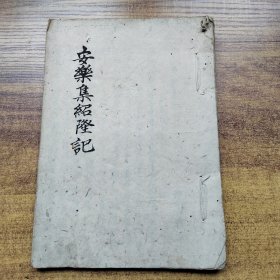 安樂集紹隆記